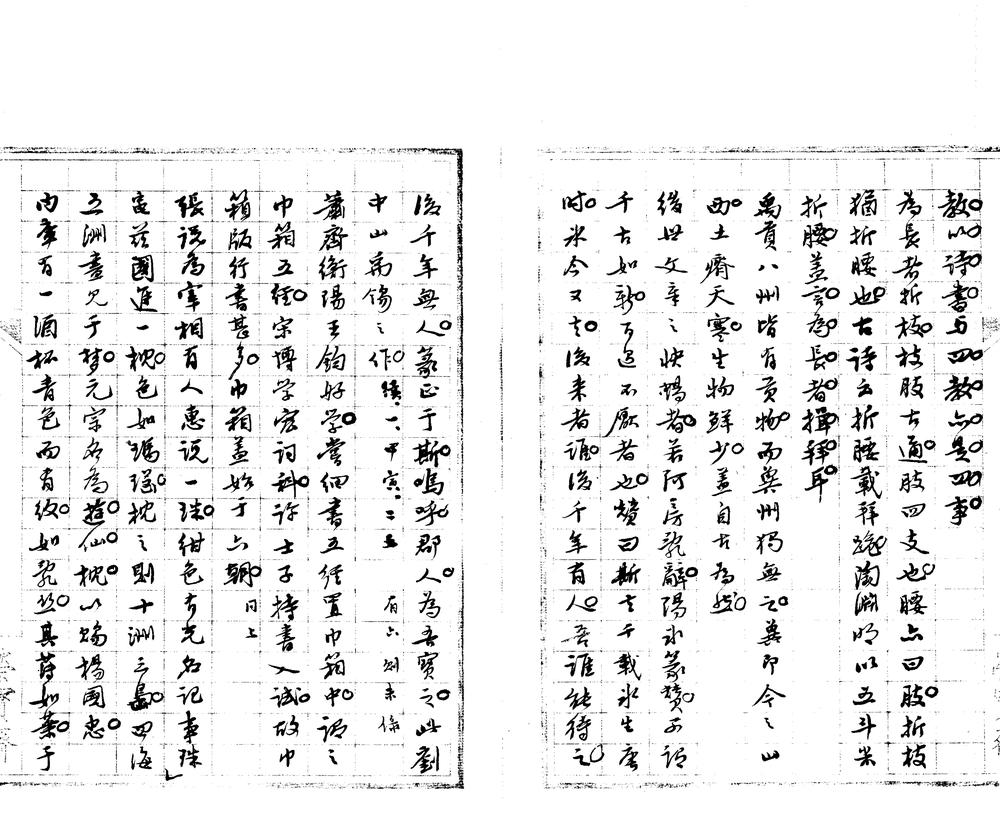 教以詩書与四教六是四事
為長者折枝枝肢古通肢四支也腰亦曰肢折枝
猶折腰也古詩云折腰載拜跪陶淵明以五斗米
折腰蓋言為長者揖拜耳
禹貢八州皆有貢物而冀州獨無之冀即今之山
西土瘠天寒生物鮮少蓋自古為然
後世文章之快暢者若阿房宮辭陽冰篆贊可謂
千古如新百過不厭者也贊曰斯去千載冰生唐
時冰今又去後来者誰後千年有人吾誰能待之
後千年無人篆正于斯嗚呼郡人為吾寶之此劉
中山禹錫之作 續一、甲寅、二五 有六則未錄
蕭齊衡陽王鈞好学嘗細書五經置巾箱中謂之
巾箱五經宋博学宏詞科許士子持書入試故巾
箱版行書甚多巾箱蓋始于六朝 同上
張說為宰相有人惠說一珠紺色有光名記事珠
龜茲國進一枕色如瑪瑙枕之則十洲三島四海
五洲盡見于夢元宗名為遊仙枕以賜楊國忠
内庫有一酒杯青色而有紋如亂丝其薄如葉于